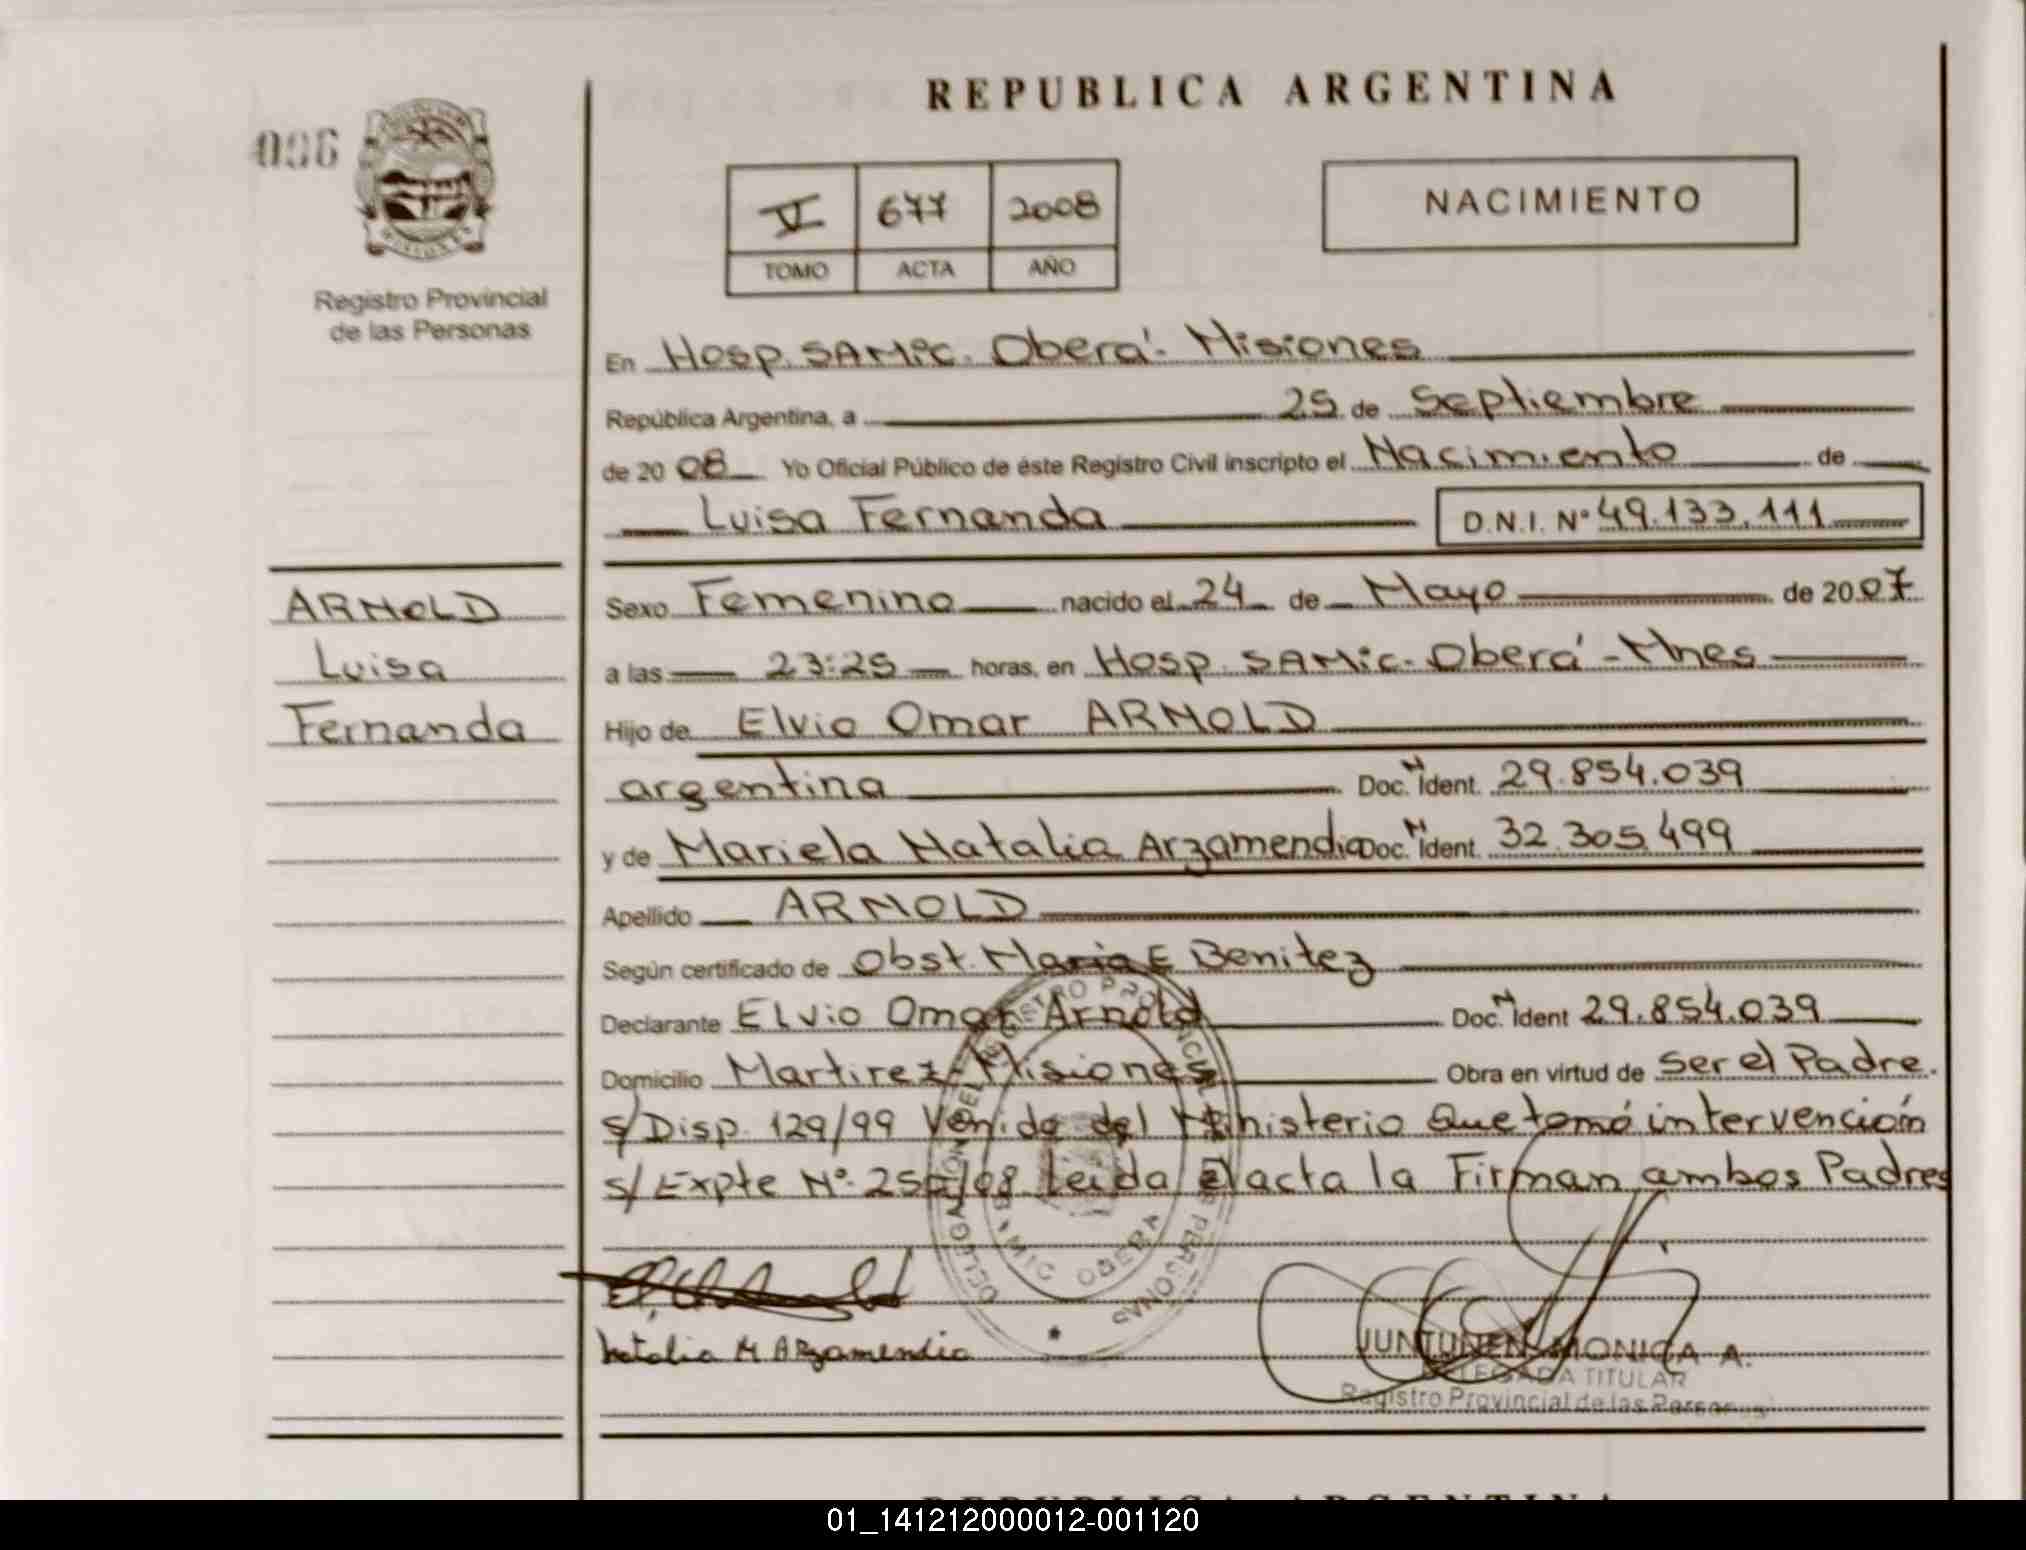 REPUBLICA ARGENTINA
096
V 677 2008
TOMO ACTA AÑO
NACIMIENTO
MISIONES
Registro Provincial
de las Personas
En Hosp. SAMic. Oberá - Misiones
República Argentina, a 25 de Septiembre
de 2008 Yo Oficial Público de éste Registro Civil inscripto el Nacimiento de
Luisa Fernanda D.N.I. Nº 49.133.111
ARNOLD
Luisa
Fernanda
Sexo Femenino nacido el 24 de Mayo de 2007
a las 23:25 horas, en Hosp. SAMic. Oberá - Mnes
Hijo de Elvio Omar ARNOLD
argentina Doc. N Ident. 29.854.039
y de Mariela Natalia Arzamendia Doc. N Ident. 32.305.499
Apellido ARNOLD
Según certificado de Obst. Maria E Benitez
Declarante Elvio Omar Arnold Doc. N Ident 29.854.039
Domicilio Martirez - Misiones Obra en virtud de Ser el Padre.
s/Disp. 129/99 Venida del Ministerio Que tomó intervención
s/Expte Nº. /08 Leida el acta la Firman ambos Padres
DELEGACION DEL REGISTRO PROVINCIAL DE LAS PERSONAS
SAMIC OBERA
Natalia M Arzamendia
JUNTUNEN MONICA A.
DELEGADA TITULAR
Registro Provincial de las Personas
REPUBLICA ARGENTINA
01_141212000012-001120